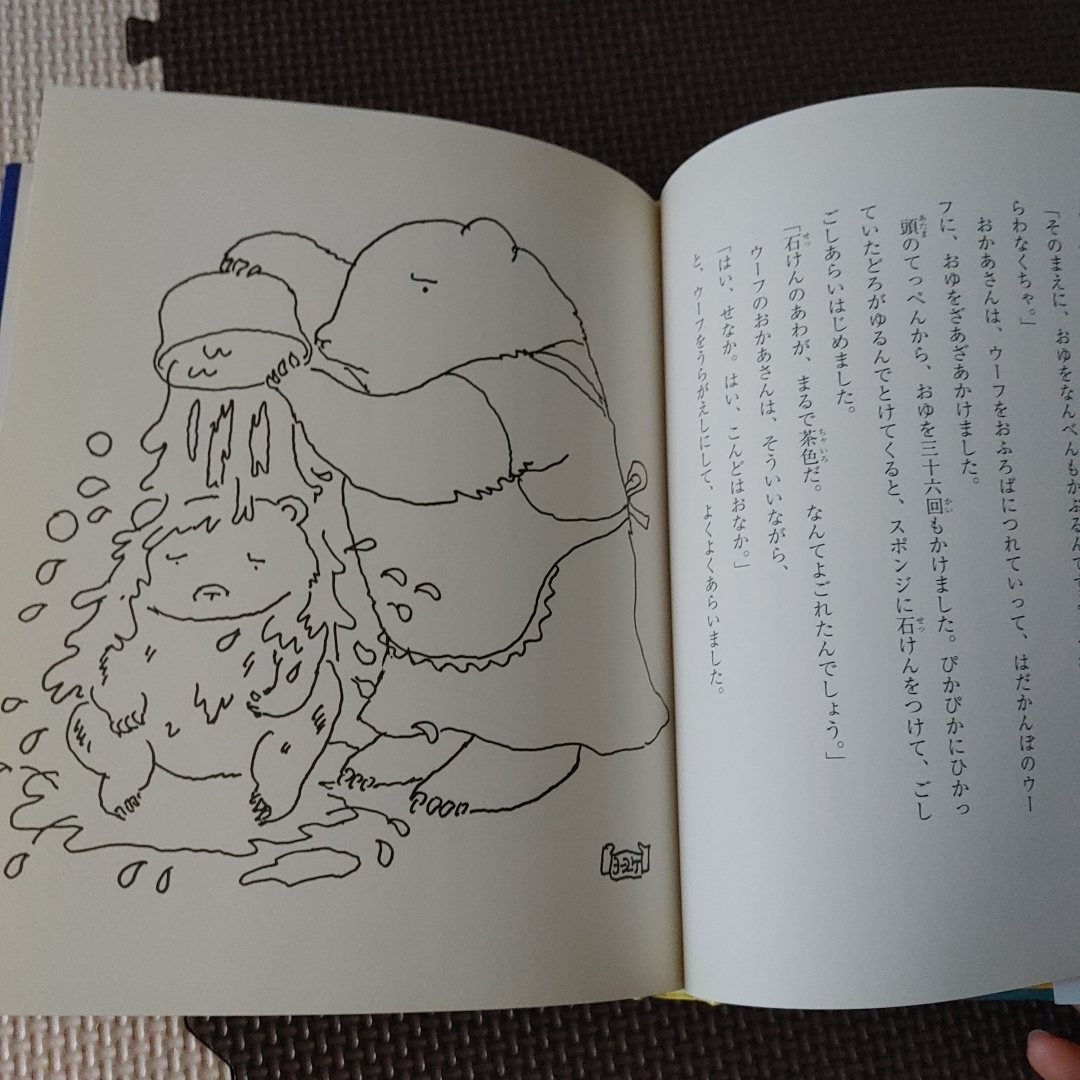 「そのまえに、おゆをなんべんもかぶるんです。
らわなくちゃ。」
おかあさんは、ウーフをおふろばにつれていって、はだかんぼのウー
フに、おゆをざあざあかけました。
頭のてっぺんから、おゆを三十六回もかけました。ぴかぴかにひかっ
ていたどろがゆるんでとけてくると、スポンジに石けんをつけて、ごし
ごしあらいはじめました。
「石けんのあわが、まるで茶色だ。なんてよごれたんでしょう。」
ウーフのおかあさんは、そういいながら、
「はい、せなか。はい、こんどはおなか。」
と、ウーフをうらがえしにして、よくよくあらいました。
ヨースケ